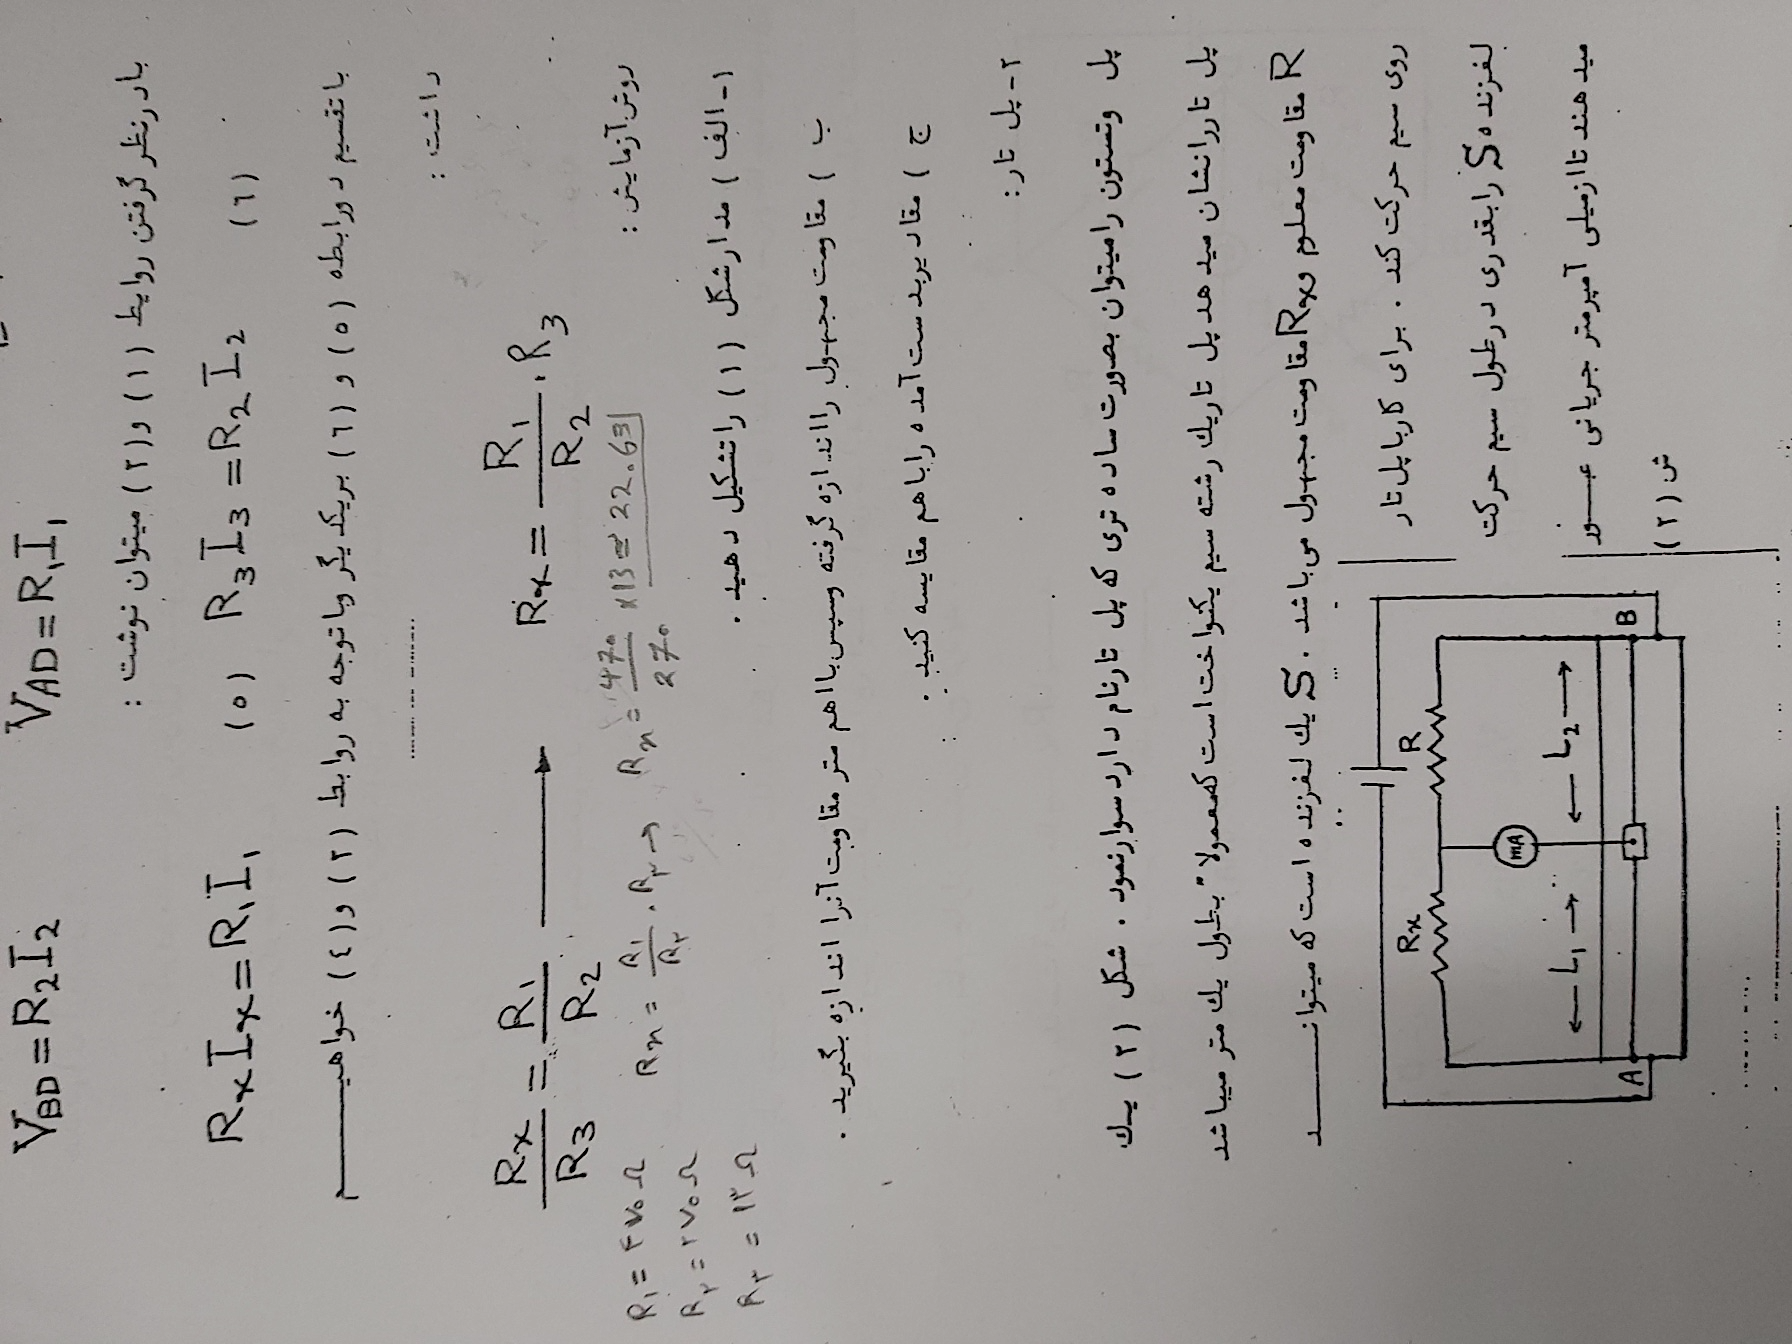 V_BD = R₂I₂    V_AD = R₁I₁
بادرنظر گرفتن روابط (۱) و(۲) میتوان نوشت :
RₓIₓ = R₁I₁    (٥)    R₃I₃ = R₂I₂    (٦)
باتقسیم دورابطه (٥) و (٦) بریکدیگر وباتوجه به روابط (۲) و(٤) خواهیــــم
داشت :
Rₓ/R₃ = R₁/R₂ ⟶ Rₓ = R₁/R₂ . R₃
R₁ = ۴۷۰ Ω    Rₓ = R₁/R₂ . R₃ → Rₓ = 470/270 × 13 ≃ 22.63
R₂ = ۲۷۰ Ω
R₃ = ۱۳ Ω
روش آزمایش :
۱- الف ) مدارشکل (۱) راتشکیل دهید .
ب ) مقاومت مجهول رااندازه گرفته وسپس بااهم متر مقاومت آنرا اندازه بگیرید .
ج ) مقادیر بدست آمده راباهم مقایسه کنید .
۲- پل تار :
پل وتستون رامیتوان بصورت ساده تری که پل تارنام دارد سوارنمود . شکل (۲) یك
پل تاررانشان میدهد پل تاریك رشته سیم یکنواخت است که معمولا" بطول یك متر میباشد
R مقاومت معلوم و Rₓ مقاومت مجهول می باشد . S یك لغزنده است که میتوانــــد
روی سیم حرکت کند . برای کاربا پل تار
لغزنده S رابقدری درطول سیم حرکت
میدهند تا ازمیلی آمپرمتر جریانی عبــور
ش (۲)
Rₓ    R
mA
← L₁ →    ← L₂ →
A    B